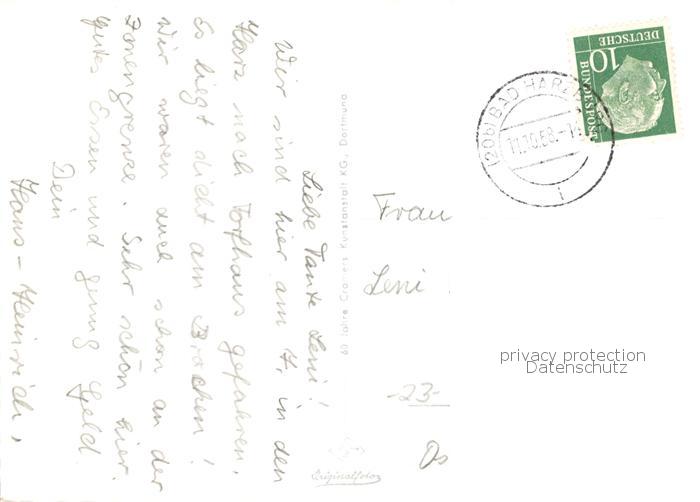 Liebe Tante Leni!
Wir sind hier am 7. in den
Harz nach Torfhaus gefahren.
Es liegt dicht am Brocken!
Wir waren auch schon an der
Zonengrenze. Sehr schön hier.
Gutes Essen und genug Geld.
Dein
Hans-Heinrich,
60 Jahre Cramers Kunstanstalt KG., Dortmund
Originalfoto
DEUTSCHE
BUNDESPOST
10
(20b) BAD HARZ
11.10.58.-1
1
Frau
Leni
-23-
Os
privacy protection
Datenschutz